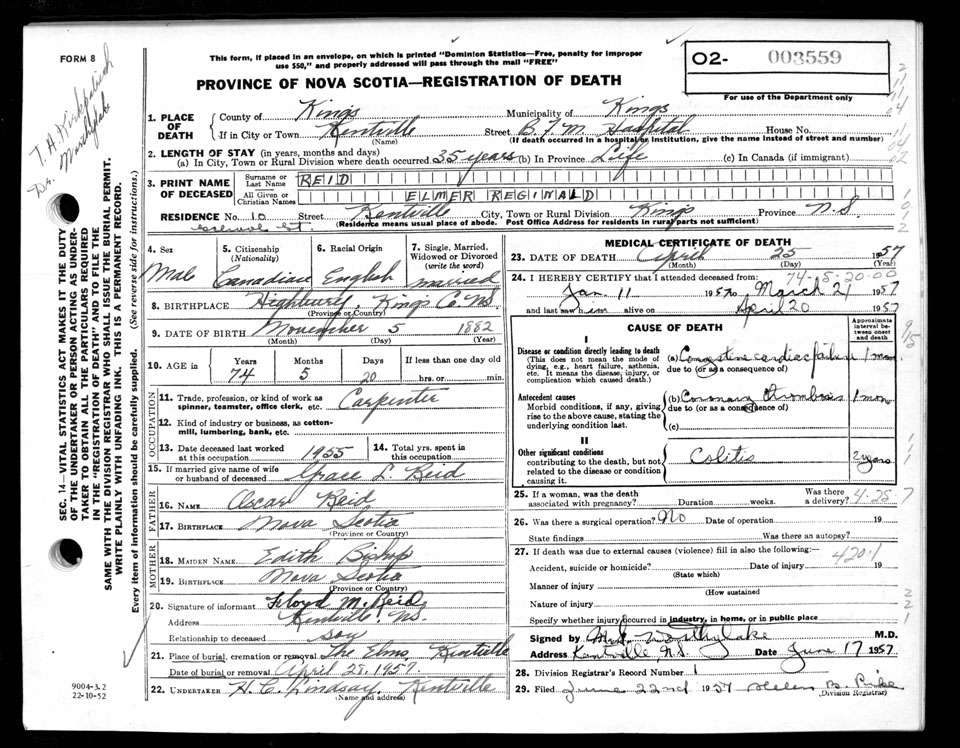 FORM 8
This form, if placed in an envelope, on which is printed "Dominion Statistics—Free, penalty for improper
use $50," and properly addressed will pass through the mail "FREE"
PROVINCE OF NOVA SCOTIA—REGISTRATION OF DEATH
02- 003559
For use of the Department only
T. A. Kirkpatrick
Dr.
SEC. 14—VITAL STATISTICS ACT MAKES IT THE DUTY
OF THE UNDERTAKER OR PERSON ACTING AS UNDER-
TAKER TO OBTAIN ALL THE PARTICULARS REQUIRED
IN THE "REGISTRATION OF DEATH" AND TO FILE THE
SAME WITH THE DIVISION REGISTRAR WHO SHALL ISSUE THE BURIAL PERMIT.
WRITE PLAINLY WITH UNFADING INK. THIS IS A PERMANENT RECORD.
Every item of information should be carefully supplied. (See reverse side for instructions.)
1. PLACE OF DEATH County of Kings Municipality of Kings
If in City or Town Kentville Street B. F. M. Hospital House No.
(Name) (If death occurred in a hospital or institution, give the name instead of street and number)
2. LENGTH OF STAY (in years, months and days)
(a) In City, Town or Rural Division where death occurred 35 years (b) In Province Life (c) In Canada (if immigrant)
3. PRINT NAME OF DECEASED Surname or Last Name REID
All Given or Christian Names ELMER REGINALD
RESIDENCE No. 10 Street Kentville City, Town or Rural Division Kings Province N.S.
School St (Residence means usual place of abode. Post Office Address for residents in rural parts not sufficient)
4. Sex 5. Citizenship (Nationality) 6. Racial Origin 7. Single, Married, Widowed or Divorced (write the word)
Male Canadian English married
8. BIRTHPLACE Highbury, Kings Co. NS
(Province or Country)
9. DATE OF BIRTH November 5 1882
(Month) (Day) (Year)
10. AGE in Years Months Days If less than one day old
74 5 20 hrs. or min.
OCCUPATION
11. Trade, profession, or kind of work as spinner, teamster, office clerk, etc. Carpenter
12. Kind of industry or business, as cotton-mill, lumbering, bank, etc.
13. Date deceased last worked at this occupation 1955 14. Total yrs. spent in this occupation
15. If married give name of wife or husband of deceased Grace L. Reid
FATHER
16. NAME Oscar Reid
17. BIRTHPLACE Nova Scotia
(Province or Country)
MOTHER
18. MAIDEN NAME Edith Bishop
19. BIRTHPLACE Nova Scotia
(Province or Country)
20. Signature of informant Floyd M. Reid
Address Kentville, N.S.
Relationship to deceased son
21. Place of burial, cremation or removal The Elms, Kentville
Date of burial or removal April 28, 1957
22. UNDERTAKER H. C. Lindsay, Kentville
(Name and address)
9004-3.2
22-10-52
MEDICAL CERTIFICATE OF DEATH
23. DATE OF DEATH April 25 1957
(Month) (Day)
74-5-20.00
24. I HEREBY CERTIFY that I attended deceased from:
Jan. 11 1957 to March 21 1957
and last saw him alive on April 20 1957
CAUSE OF DEATH Approximate interval between onset and death
I
Disease or condition directly leading to death (a) Congestive cardiac failure 1 mon
(This does not mean the mode of dying, e.g., heart failure, asthenia, etc. It means the disease, injury, or complication which caused death.) due to (or as a consequence of)
Antecedent causes (b) Coronary thrombosis 1 mon
Morbid conditions, if any, giving rise to the above cause, stating the underlying condition last. due to (or as a consequence of)
(c)
II
Other significant conditions Colitis 2 years
contributing to the death, but not related to the disease or condition causing it.
25. If a woman, was the death associated with pregnancy? Duration weeks. Was there a delivery? 4-28-7
26. Was there a surgical operation? No Date of operation 19
State findings Was there an autopsy?
27. If death was due to external causes (violence) fill in also the following:— 420.1
Accident, suicide or homicide? Date of injury 19
(State which)
Manner of injury
(How sustained
Nature of injury
Specify whether injury occurred in industry, in home, or in public place
Signed by M.D.
Address Kentville N.S. Date June 17 1957
28. Division Registrar's Record Number 1
29. Filed June 22nd 1957 Helen B. Pike
(Division Registrar)